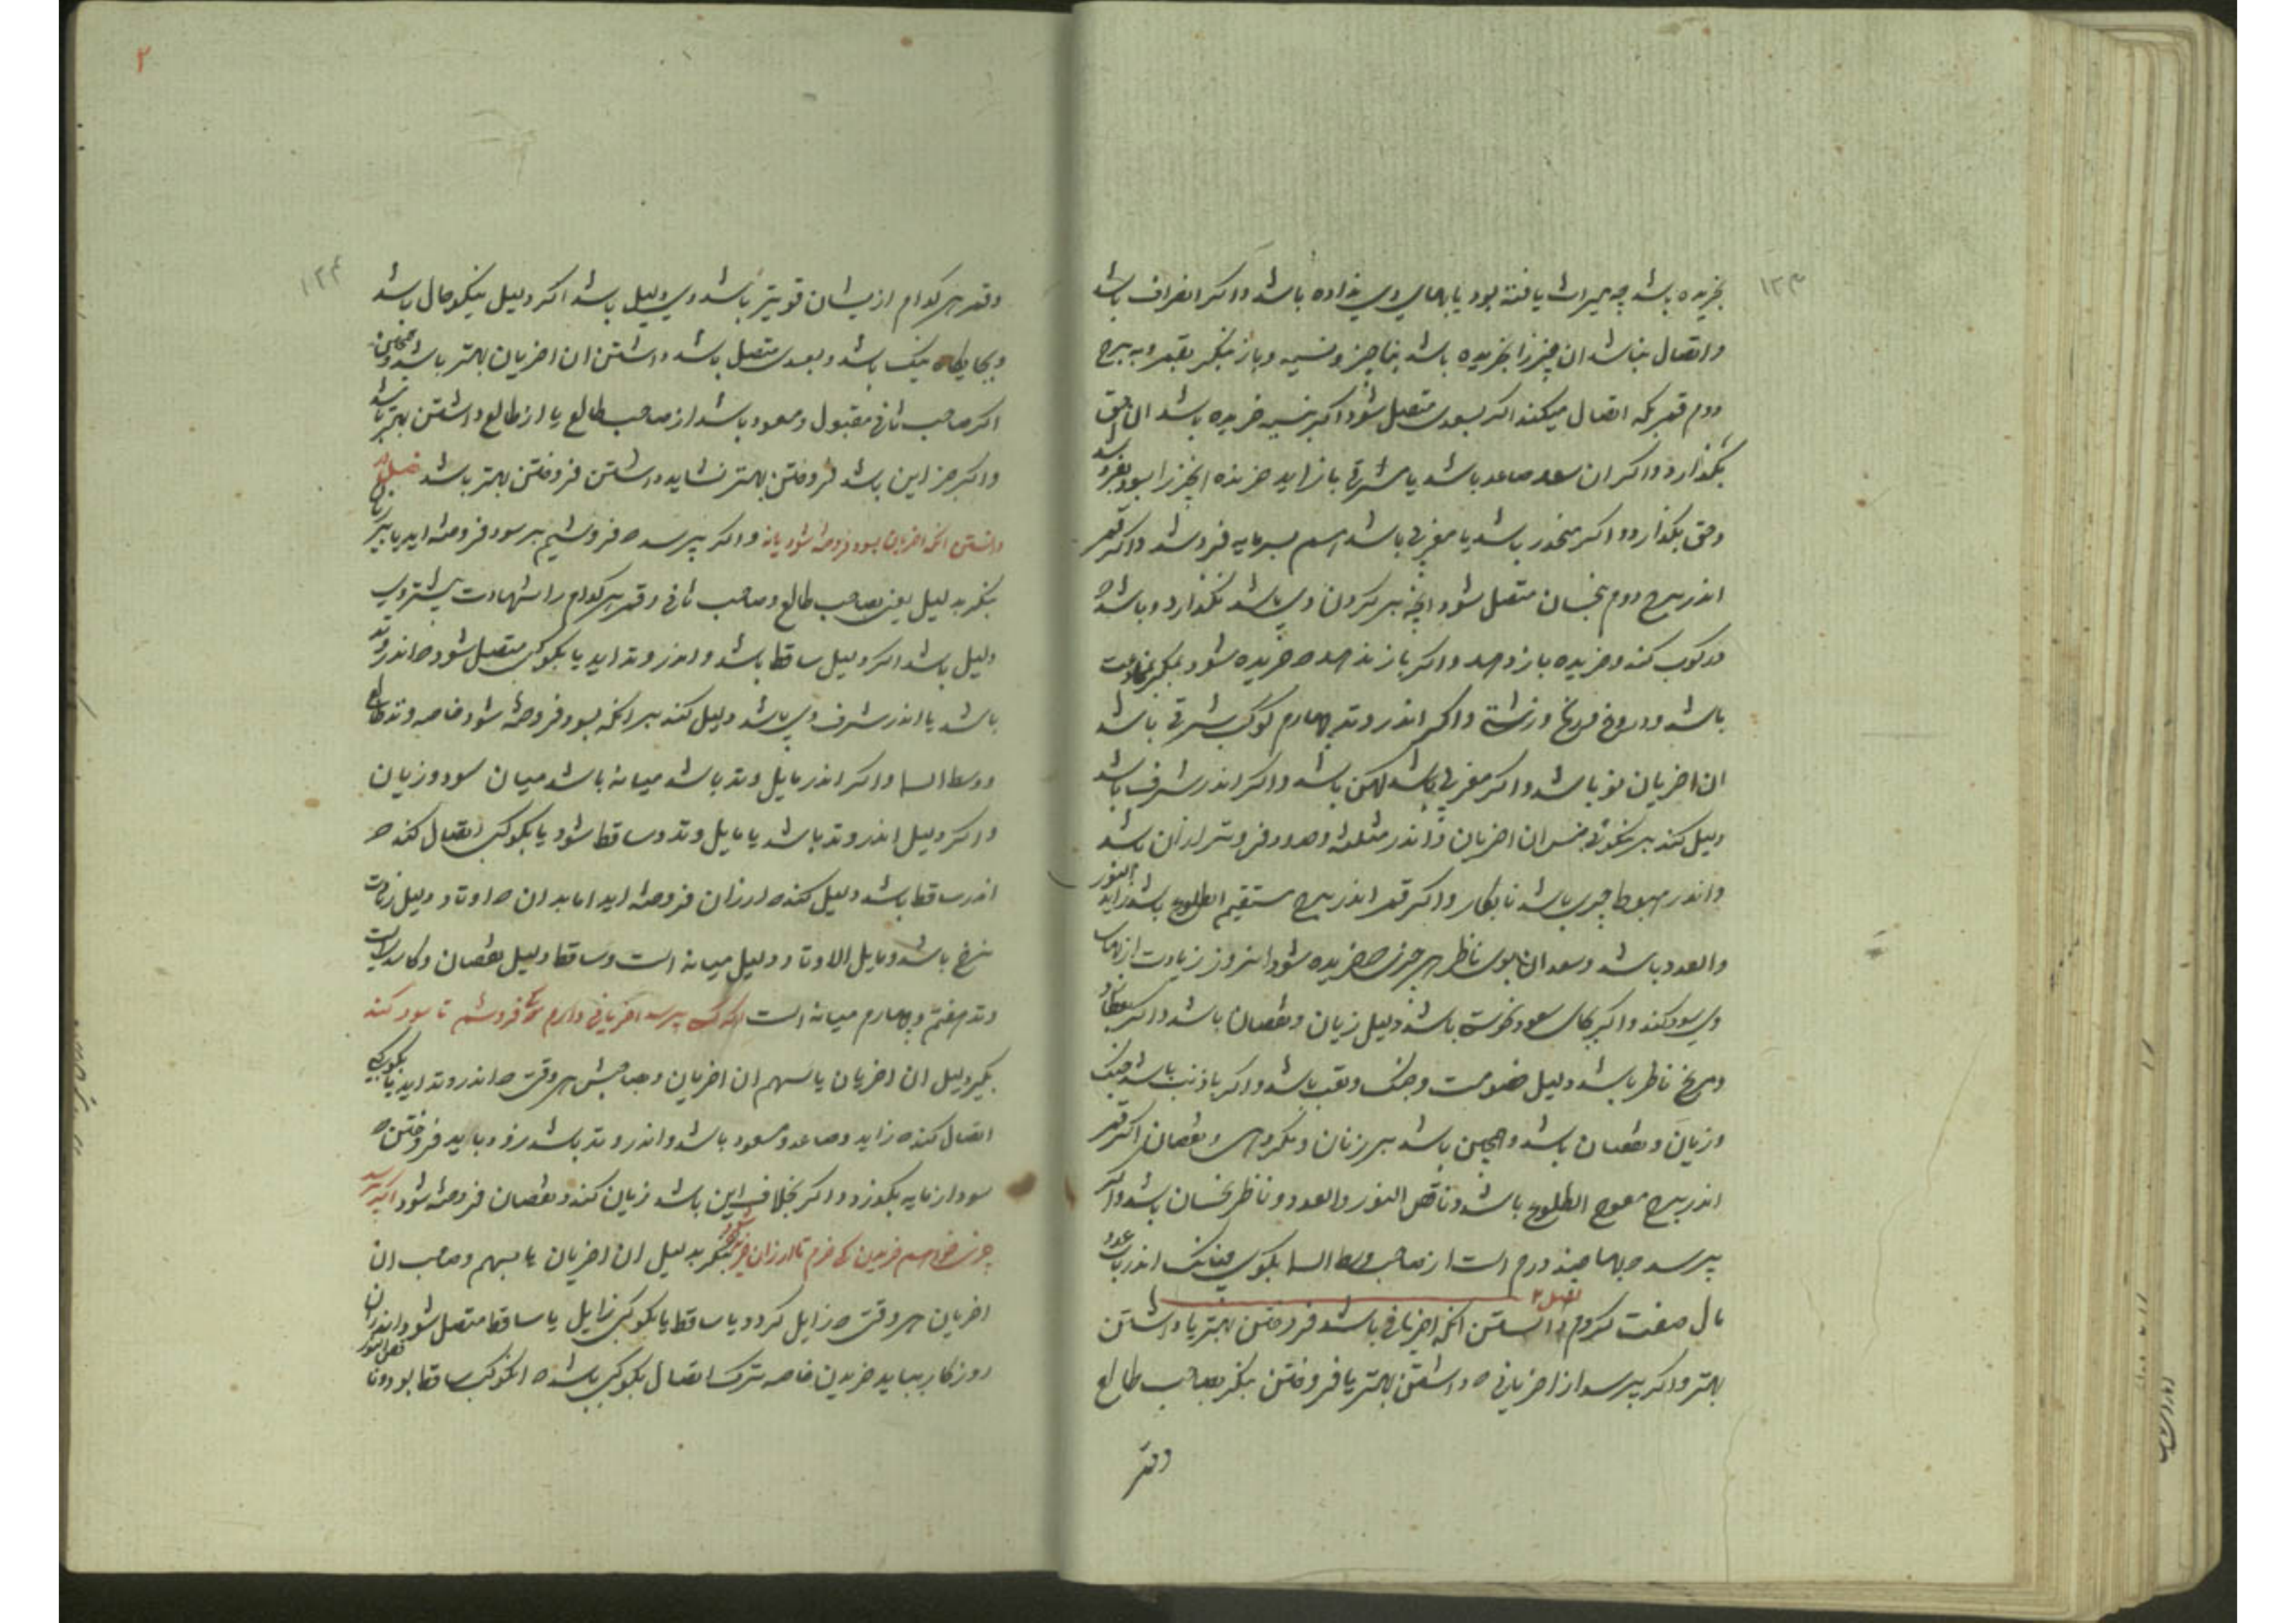 ۱۲۳
بخریده باشد چه میراث یافته بود یا بهای وی بداده باشد و اگر انصراف باشد
و اتصال نباشد ان چیز را بخریده باشد و نسیه و باز بنگر بقمر و به برج
دوم قمر بکه اتصال میکند اگر بسعدی متصل شود اگر بنسیه خریده باشد ان حق
بگذارد و اگر ان سعد صاعد باشد یا مشرقی باز اید خرنده انچیز را بسود بفروشد
وحق بگذارد و اگر منحدر باشد یا مغربی باشد هم بسرمایه فروشد و اگر قمر
اندر برج دوم بنحسان متصل شود انچه بر کردن وی باشد نگذارد و باشد ه
کند و خریده باز دهد و اگر باز ندهد ه خریده شود
باشد و دروغ و اگر اندر وتد چهارم کوکب شرقی باشد
ان اخریان نو باشد و اگر مغربی باشد کهن باشد و اگر اندر شرف باشد
دلیل کند بر نکوئی جنس ان اخریان و اندر مثلثه و حدود فروتر از ان باشد
و اندر هبوط چیزی باشد نابکار و اگر قمر اندر برج مستقیم الطلوع باشد زاید النور
والعدد باشد و سعدان بوی ناظر هر چیزی ه خریده شود انروز زیادت از بهای
وی سود کند و اگر بجای سعود نحوست باشد دلیل زیان و نقصان باشد و اگر عطارد
و مریخ ناظر باشد دلیل خصومت و جنگ و تعب باشد و اگر با ذنب باشد جنگ
و زیان و نقصان باشد و همچنین باشد بر زنان و نقصان اگر قمر
اندر برج معوج الطلوع باشد و ناقص النور والعدد و ناظر نحسان باشد و اگر
پرسد ه بها چند درم است از صاحب وسط السما بگوی چنانک اندر باب عدد
مال صفت کردم فصل ۲ دانستن انکه اخریانی باشد فروختن بهتر یا داشتن
بهتر و اگر پرسد از اخریانی ه داشتن بهتر یا فروختن بنگر بصاحب طالع
وقمر
۲
۱۲۴
وقمر هر کدام از یشان قویتر باشد وی دلیل باشد اگر دلیل نیکوحال باشد
و بجایگاه نیک باشد و بسعدی متصل باشد داشتن ان اخریان بهتر باشد و همچنین
اگر صاحب ثانی مقبول و مسعود باشد از صاحب طالع یا از طالع داشتن بهتر باشد
و اگر جز این باشد فروختن بهتر نشاید داشتن فروختن بهتر باشد فصل
دانستن انکه اخریان بسود فروخته شود یا نه و اگر پرسد ه فروشیم بر سود فروخته اید یا
بنگر بدلیل یعنی بصاحب طالع و صاحب ثانی و قمر هر کدام را شهادت بیشتر وی
دلیل باشد اگر دلیل ساقط باشد و اندر وتد اید یا بکوکبی متصل شود ه اندر وتد
باشد یا اندر شرف وی باشد دلیل کند بر انکه بسود فروخته شود خاصه وتد طالع
و وسط السما و اگر اندر مایل وتد باشد میانه باشد میان سود و زیان
و اگر دلیل اندر وتد باشد یا مایل وتد و ساقط شود یا بکوکبی اتصال کند ه
اندر ساقط باشد دلیل کند ه ارزان فروخته اید اما بدان ه اوتاد دلیل زیادت
نرخ باشد و مایل الاوتاد دلیل میانه است و ساقط دلیل نقصان و کاسدیست
وتد هفتم و چهارم میانه است اگر کسی پرسد اخریانی دارم کی فروشم تا سود کند
بنگر دلیل ان اخریان یا سهم ان اخریان و صاحبش هر وقتی ه اندر وتد اید یا بکوکبی
اتصال کند ه زاید و صاعد و مسعود باشد و اندر وتد باشد زود باید فروختن ه
سود از مایه بگذرد و اگر بخلاف این باشد زیان کند و نقصان فروخته شود اگر پرسد
چیزی خواهم خریدن کی خرم تا ارزان خریده شود بنگر بدلیل ان اخریان یا بسهم و صاحب ان
اخریان هر وقتی ه زایل گردد یا ساقط یا بکوکبی زایل یا ساقط متصل شود اندران
روزگار بباید خریدن خاصه ترک اتصال بکوکبی باشد ه انکوکب ساقط بود و ناقص النور